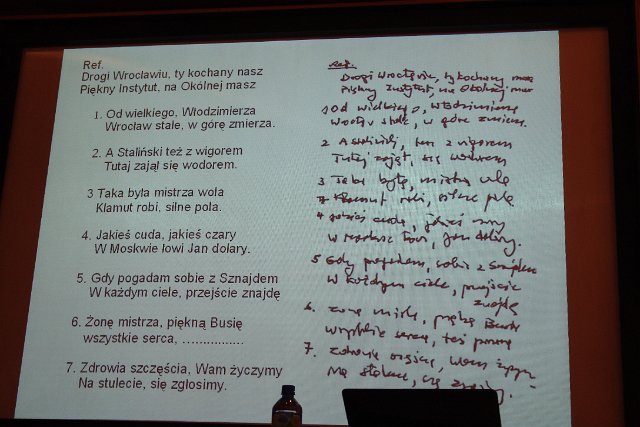 Ref.
Drogi Wrocławiu, ty kochany nasz
Piękny Instytut, na Okólnej masz
1. Od wielkiego, Włodzimierza
Wrocław stale, w górę zmierza.
2. A Staliński też z wigorem
Tutaj zajął się wodorem.
3 Taka była mistrza wola
Klamut robi, silne pola.
4. Jakieś cuda, jakieś czary
W Moskwie łowi Jan dolary.
5. Gdy pogadam sobie z Sznajdem
W każdym ciele, przejście znajdę
6. Żonę mistrza, piękną Busię
wszystkie serca, ................
7. Zdrowia szczęścia, Wam życzymy
Na stulecie, się zgłosimy.
Ref.
Drogi Wrocławiu, ty kochany nasz
Piękny Instytut, na Okólnej masz
1 Od wielkiego, Włodzimierza
Wrocław stale, w górę zmierza.
2 A Staliński, też z wigorem
Tutaj zajął, się wodorem
3 Taka była, mistrza wola
Klamut robi, silne pola
4 jakieś cuda, jakieś czary
w Moskwie łowi, Jan dolary.
5 Gdy pogadam, sobie z Sznajdem
w każdym ciele, przejście
znajdę
6. żonę mistrza, piękną Busię
wszystkie serca,
7. Zdrowia szczęścia, Wam życzymy
Na stulecie, się zgłosimy.